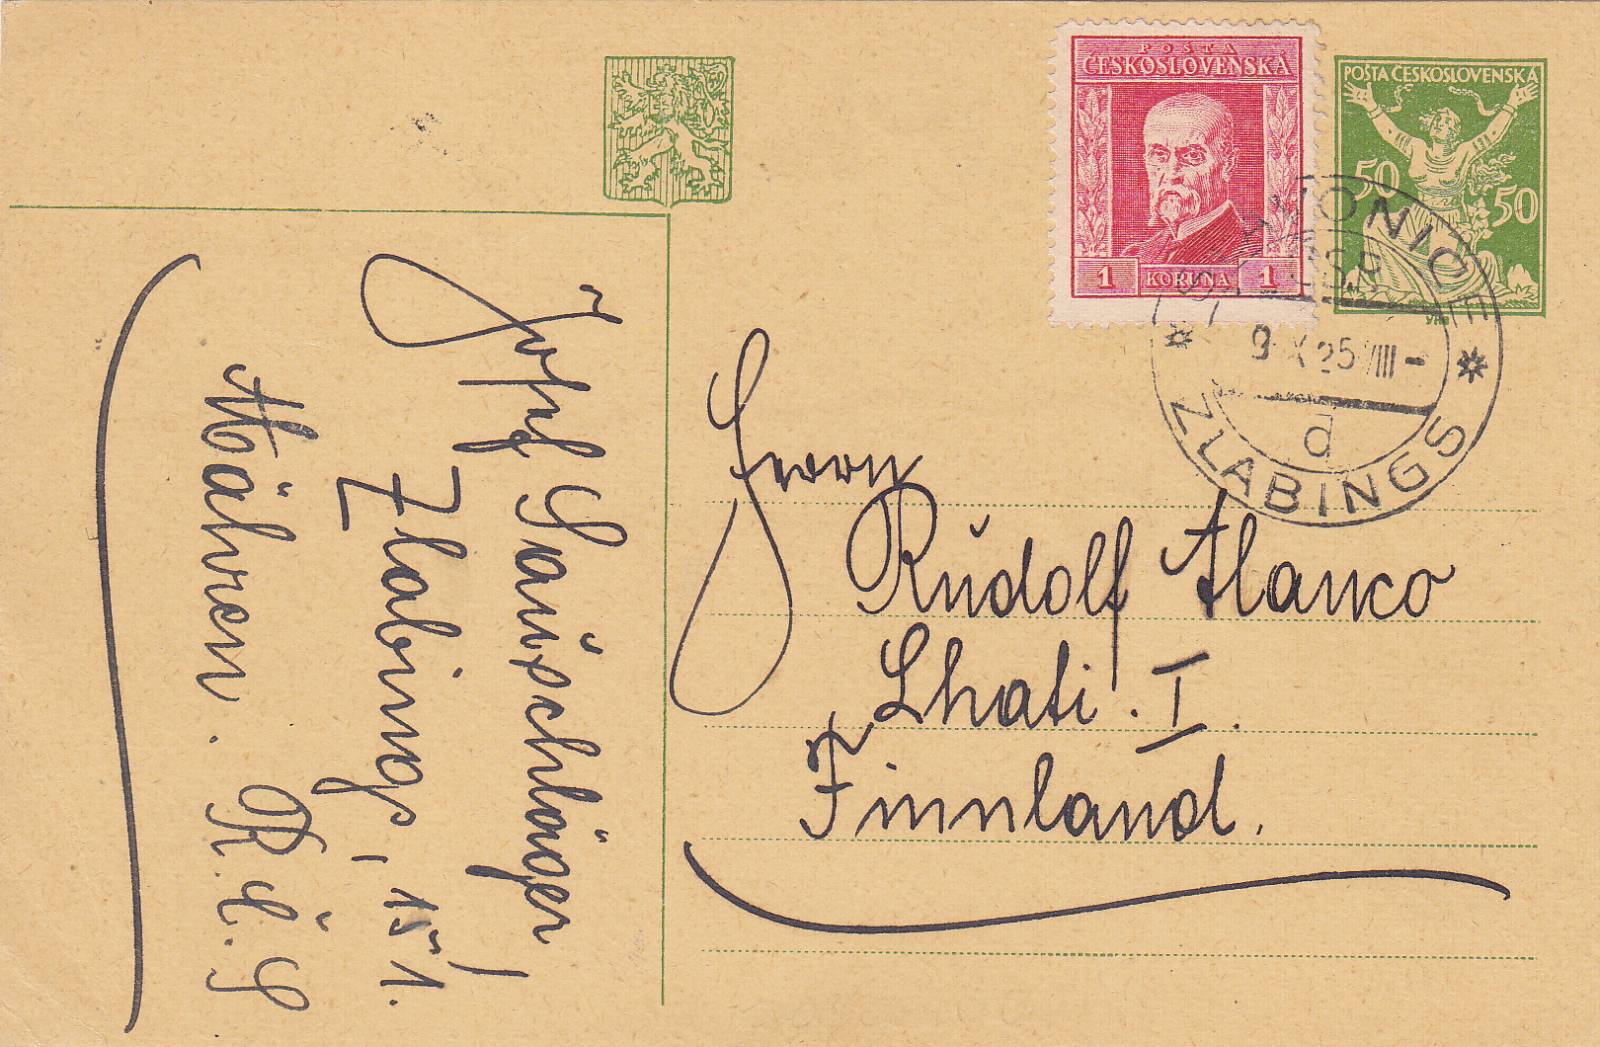 POŠTA
ČESKOSLOVENSKÁ
1 KORUNA 1
POŠTA ČESKOSLOVENSKÁ
50 50
SLAVONICE
ČSR
9 X 25 VIII -
d
ZLABINGS
Herrn
Rudolf Hanco
Lhati. I.
Finnland.
Josef Sauschläger,
Zlabings, 151.
Mähren. R.Č.S